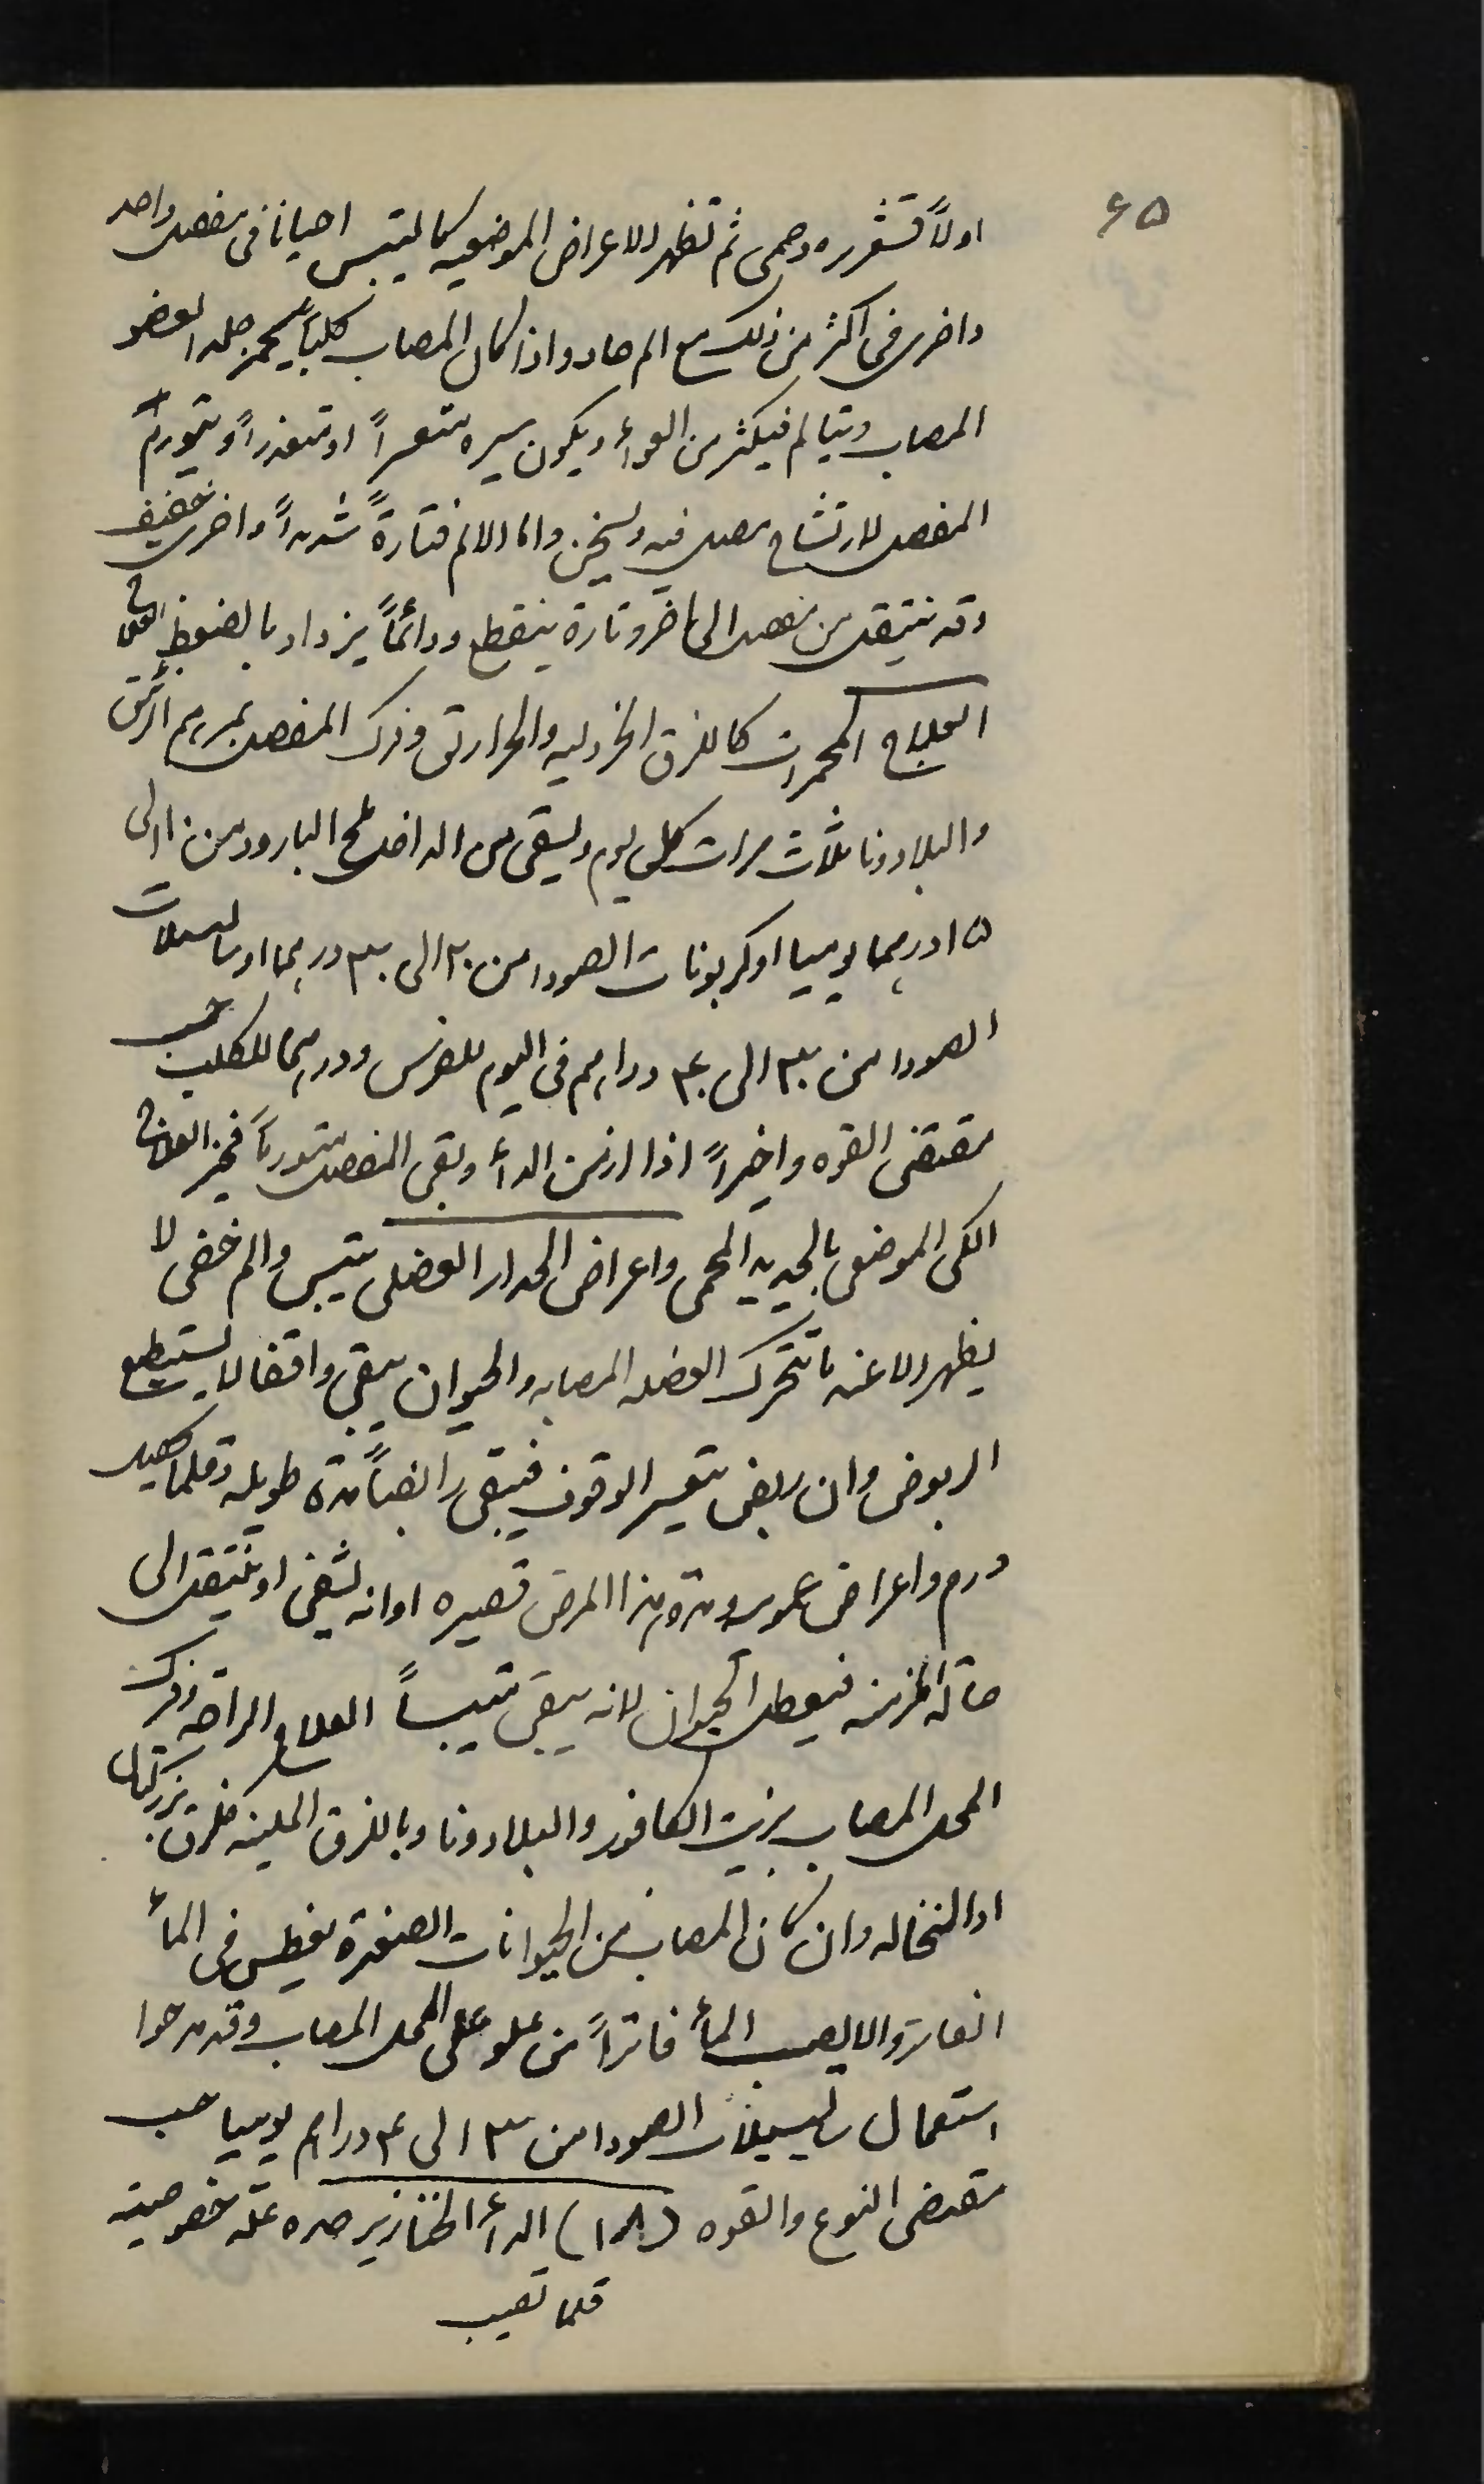 ٤٥
اولاً قشعريره وحمى ثم تظهر الاعراض الموضعيه كالتيبس احيانا فى مفصل واحد
واخرى فى اكثر من ذلك مع الم حاد واذا كان المصاب كلباً يحمر جلد العضو
المصاب ويتالم فيكثر من العواء ويكون سيره متعسراً او متعذراً ويتورم
المفصل لارتشاح مصل فيه ويسخن واما الالم فتارةً شديداً واخرى خفيف
وقد ينتقل من مفصل الى اخر وتارة ينقطع ودائماً يزداد بالضغط
العلاج المحمرات كاللزق الخردليه والحراريق وفرك المفصل بمرهم الزئبق
والبلادونا ثلاث مرات كل يوم ويسقى من الداخل ملح البارود من ١٠ الى
١٥ درهما يوميا او كربونات الصودا من ٢٠ الى ٣٠ درهما او ساليسلات
الصودا من ٣٠ الى ٤٠ دراهم فى اليوم للفرس ودرهما للكلب حسب
مقتضى القوه واخيراً اذا ازمن الداء وبقى المفصل متورماً فخير العلاج
الكى الموضعى بالحديد المحمى واعراض الحدار العضلى تيبس والم خفى لا
يظهر الا عند ما تتحرك العضله المصابه والحيوان يبقى واقفا لا يستطيع
الربوض وان ربض يتعسر الوقوف فيبقى رابضاً مدة طويله وقلما يحصل
ورم واعراض عموميه ومدة هذا المرض قصيره اوانه يشفى او ينتقل الى
حالة المزمنه فيعطل الحيوان لانه يبقى متيبساً العلاج الراحه وفرك
المحل المصاب بزيت الكافور والبلادونا وباللزق الملينه كلزق بزر كتان
او النخاله وان كان المصاب من الحيوانات الصغيرة يغطس فى الماء
الفاتر والا يصب الماء فاتراً من علو على المحل المصاب وقد مدحوا
استعمال ساليسيلات الصودا من ٣ الى ٤ دراهم يوميا حسب
مقتضى النوع والقوه (١٨) الداء الخنازيرى هذه علة خصوصية
قلما تصيب